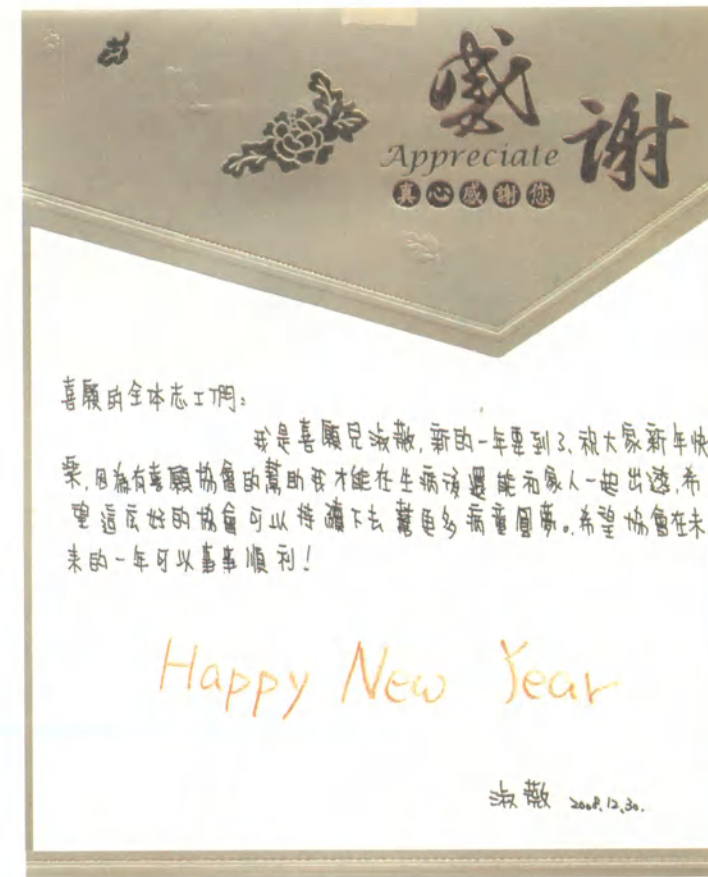 感謝
Appreciate
真心感謝您
喜願的全体志工們:
我是喜願兒淑薇,新的一年要到了,祝大家新年快
樂,因為有喜願協會的幫助我才能在生病後還能和家人一起出遊,希
望這麼好的協會可以持續下去幫更多病童圓夢。希望協會在未
來的一年可以事事順利!
Happy New Year
淑薇 2008.12.30.